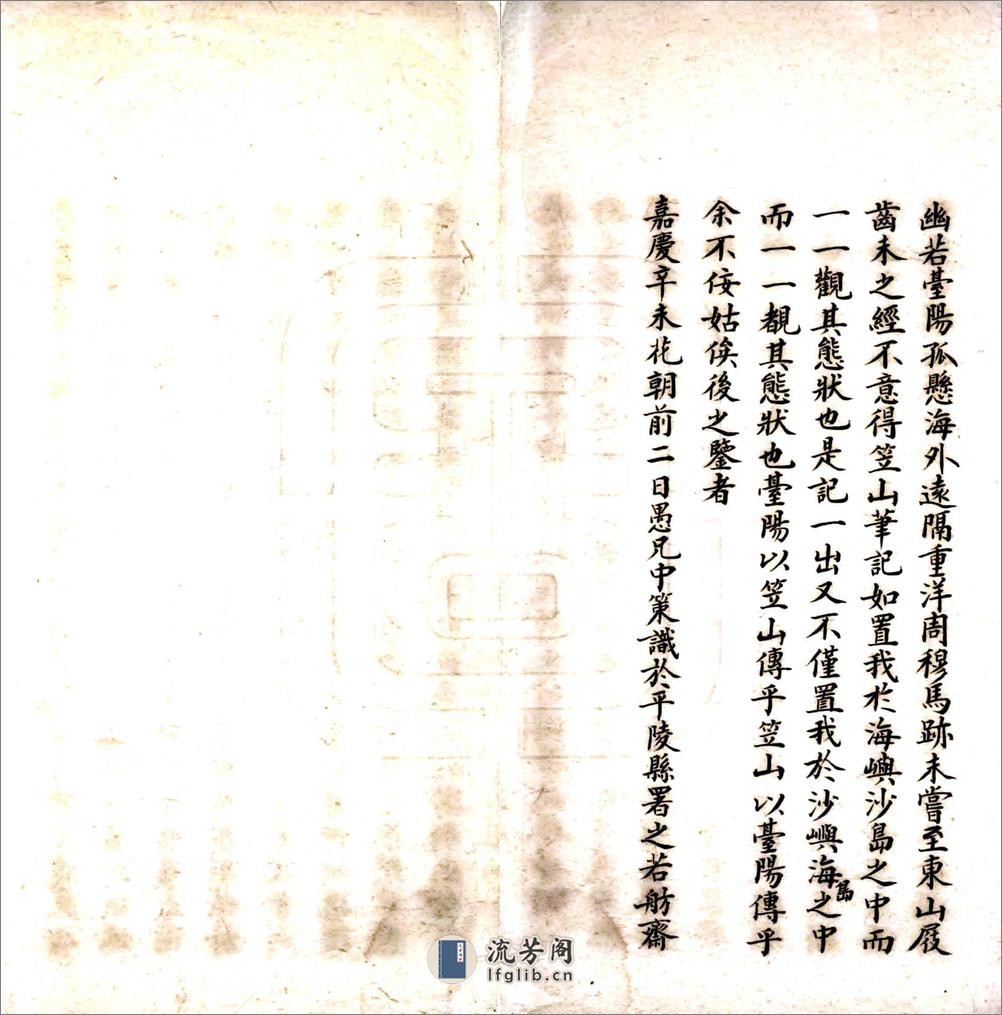 幽若臺陽孤懸海外遠隔重洋周穆馬跡未嘗至東山屐
齒未之經不意得笠山筆記如置我於海嶼沙島之中而
一一觀其態狀也是記一出又不僅置我於沙嶼海島之中
而一一覩其態狀也臺陽以笠山傳乎笠山以臺陽傳乎
余不佞姑俟後之鑒者
嘉慶辛未花朝前二日愚兄中策識於平陵縣署之若舫齋
流芳阁
lfglib.cn